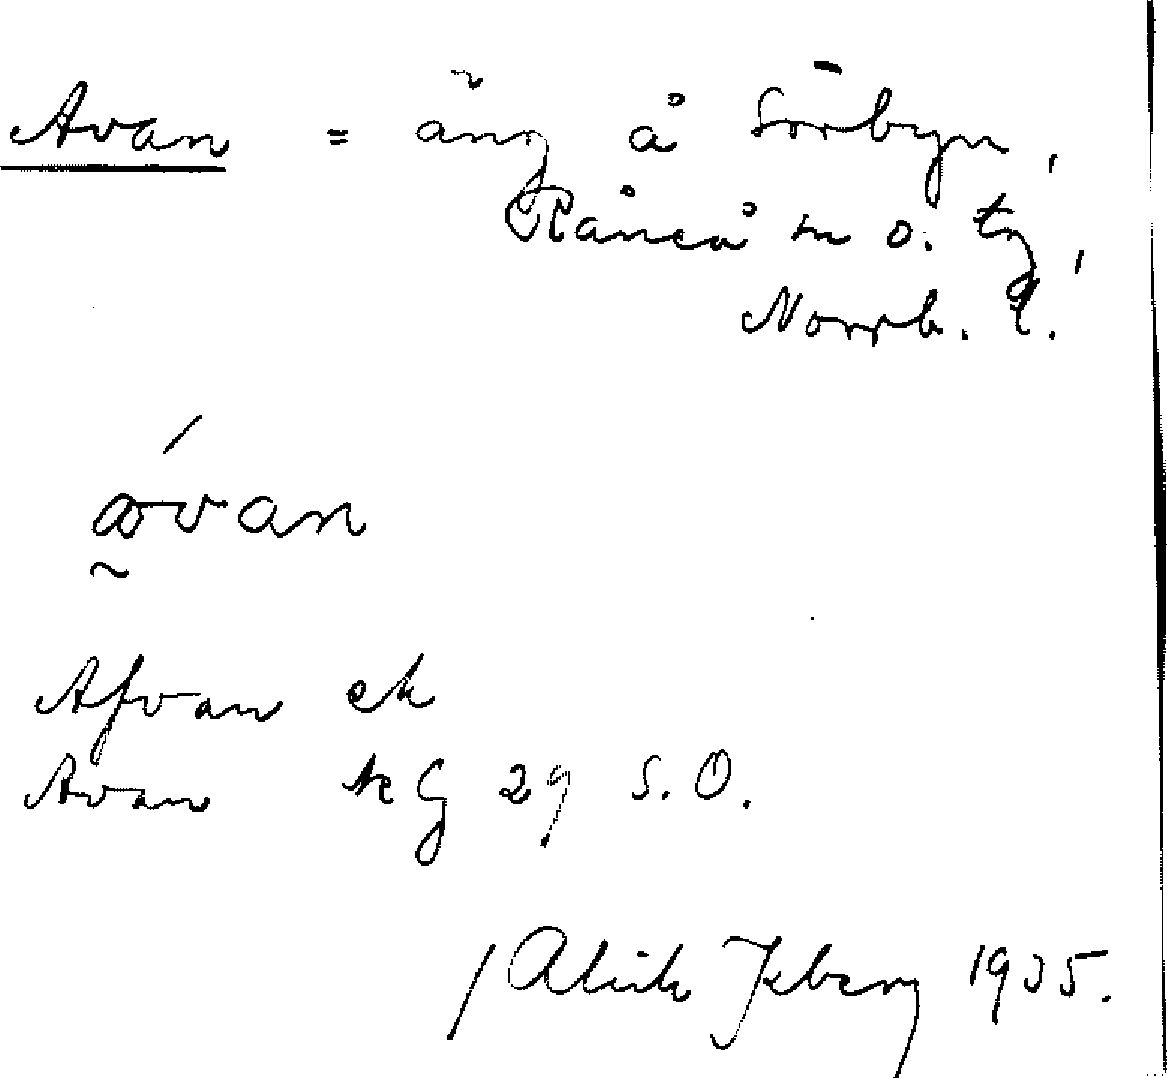 Avan = äng å Sörbyn,
Råneå sn o. tg,
Norrb. l.
a̰van
Afvan ek
Avan kG 29 S.O.
/ Alrik Ikberg 1935.